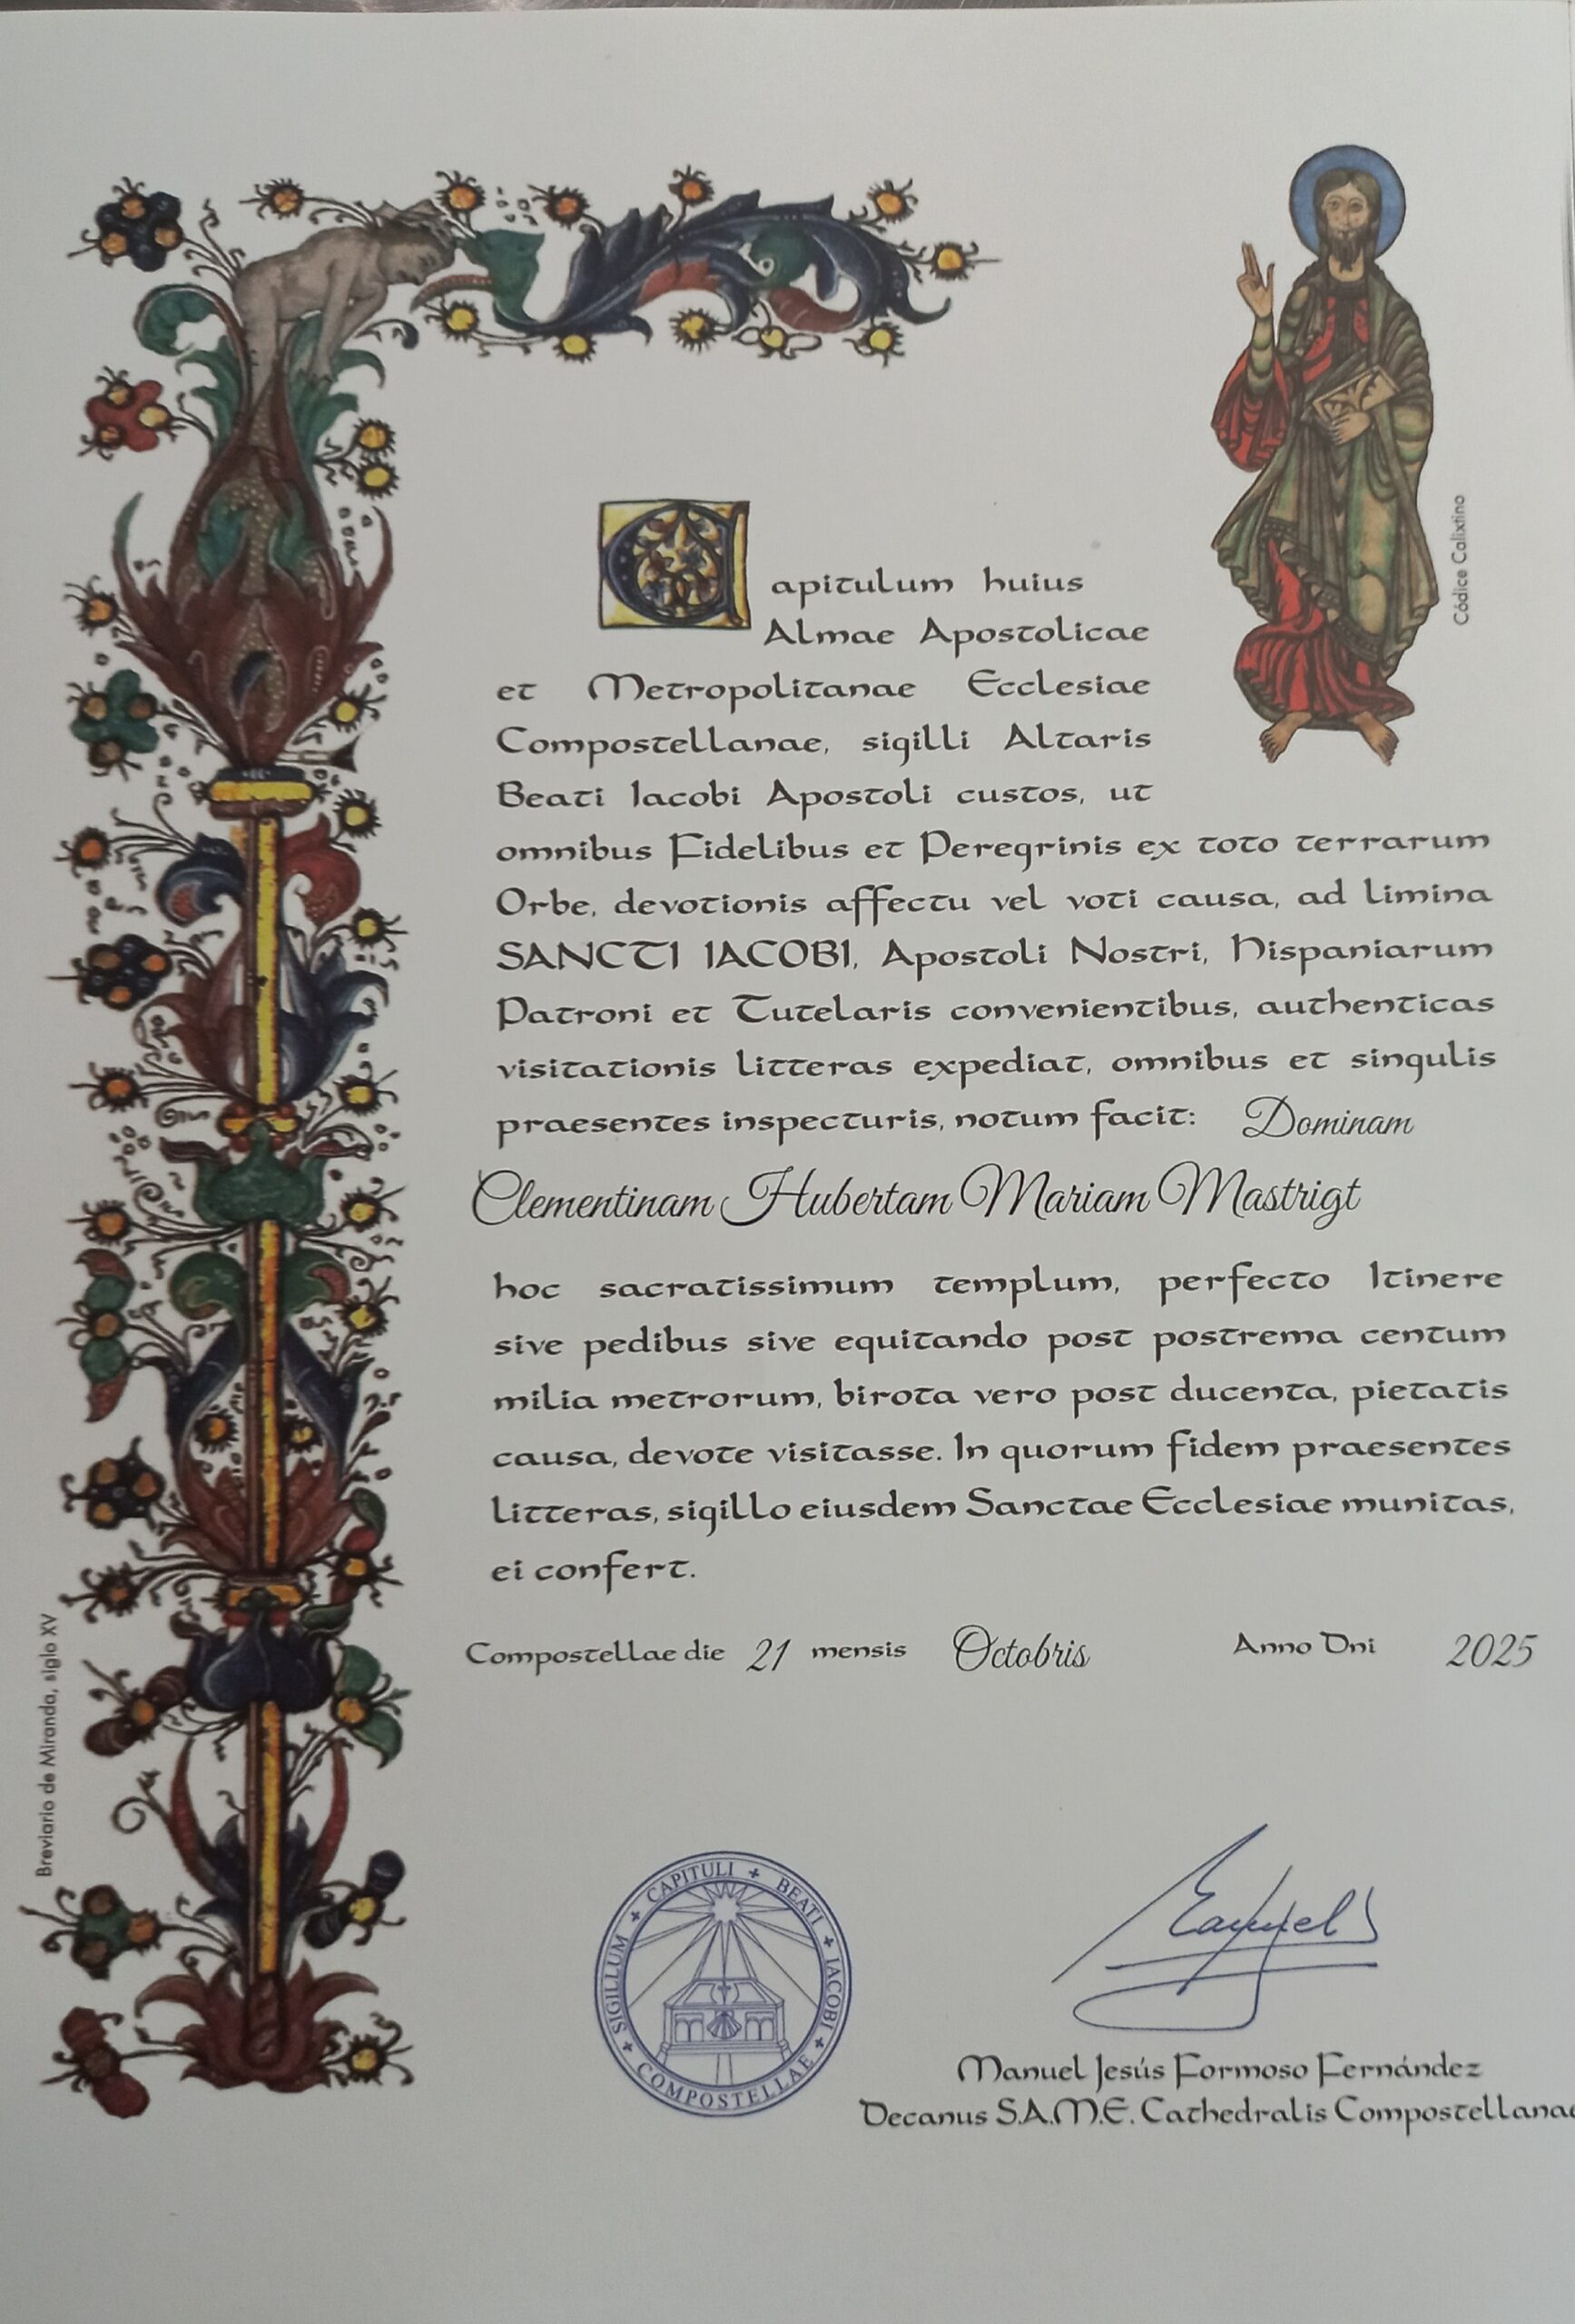 Capitulum huius
Almae Apostolicae
et Metropolitanae Ecclesiae
Compostellanae, sigilli Altaris
Beati Iacobi Apostoli custos, ut
omnibus Fidelibus et Peregrinis ex toto terrarum
Orbe, devotionis affectu vel voti causa, ad limina
SANCTI IACOBI, Apostoli Nostri, Hispaniarum
Patroni et Tutelaris convenientibus, authenticas
visitationis litteras expediat, omnibus et singulis
praesentes inspecturis, notum facit: Dominam
Clementinam Hubertam Mariam Mastrigt
hoc sacratissimum templum, perfecto Itinere
sive pedibus sive equitando post postrema centum
milia metrorum, birota vero post ducenta, pietatis
causa, devote visitasse. In quorum fidem praesentes
litteras, sigillo eiusdem Sanctae Ecclesiae munitas,
ei confert.
Compostellae die 21 mensis Octobris Anno Dni 2025
SIGILLUM + CAPITULI + BEATI + IACOBI + COMPOSTELLAE +
Manuel Jesús Formoso Fernández
Decanus S.A.M.E. Cathedralis Compostellanae
Códice Calixtino
Breviario de Miranda, siglo XV